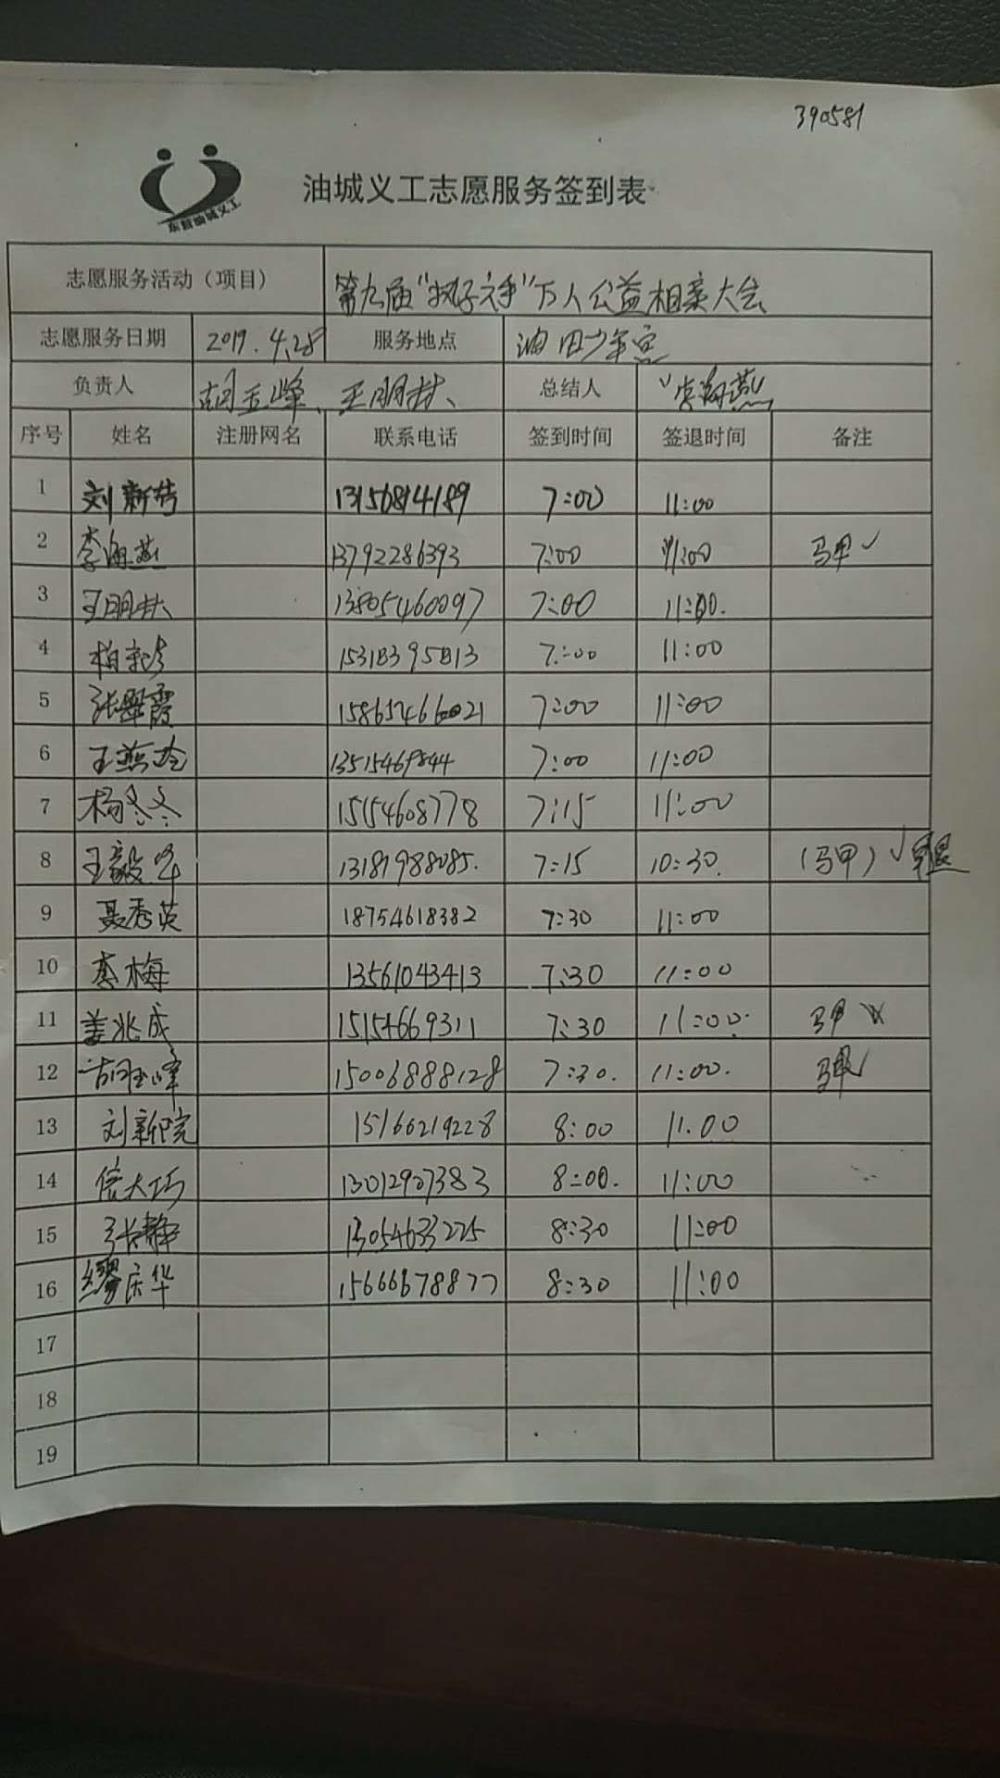 390581
东营油城义工
油城义工志愿服务签到表
志愿服务活动（项目） 第九届“执子之手”万人公益相亲大会
志愿服务日期 2019.4.28 服务地点 油田少年宫
负责人 胡玉峰、王朋林、 总结人 李海燕
序号 姓名 注册网名 联系电话 签到时间 签退时间 备注
1 刘新芳 13156814189 7:00 11:00
2 李海燕 13792286393 7:00 11:00 马甲✓
3 王朋林 13805460097 7:00 11:00.
4 15318395813 7:00 11:00
5 张翠霞 15865466021 7:00 11:00
6 王燕玲 13515469844 7:00 11:00
7 杨冬冬 15154608778 7:15 11:00
8 王毅华 13181988085. 7:15 10:30. （马甲）✓早退
9 聂秀英 18754618382 7:30 11:00
10 李梅 13561043413 7:30 11:00
11 姜兆成 15154669311 7:30 11:00. 马甲
12 胡玉峰 15006888128 7:30. 11:00. 马甲✓
13 15166219228 8:00 11.00
14 信大巧 13012907383 8:00. 11:00
15 张静 13054633225 8:30 11:00
16 缪庆华 15666678877 8:30 11:00
17
18
19